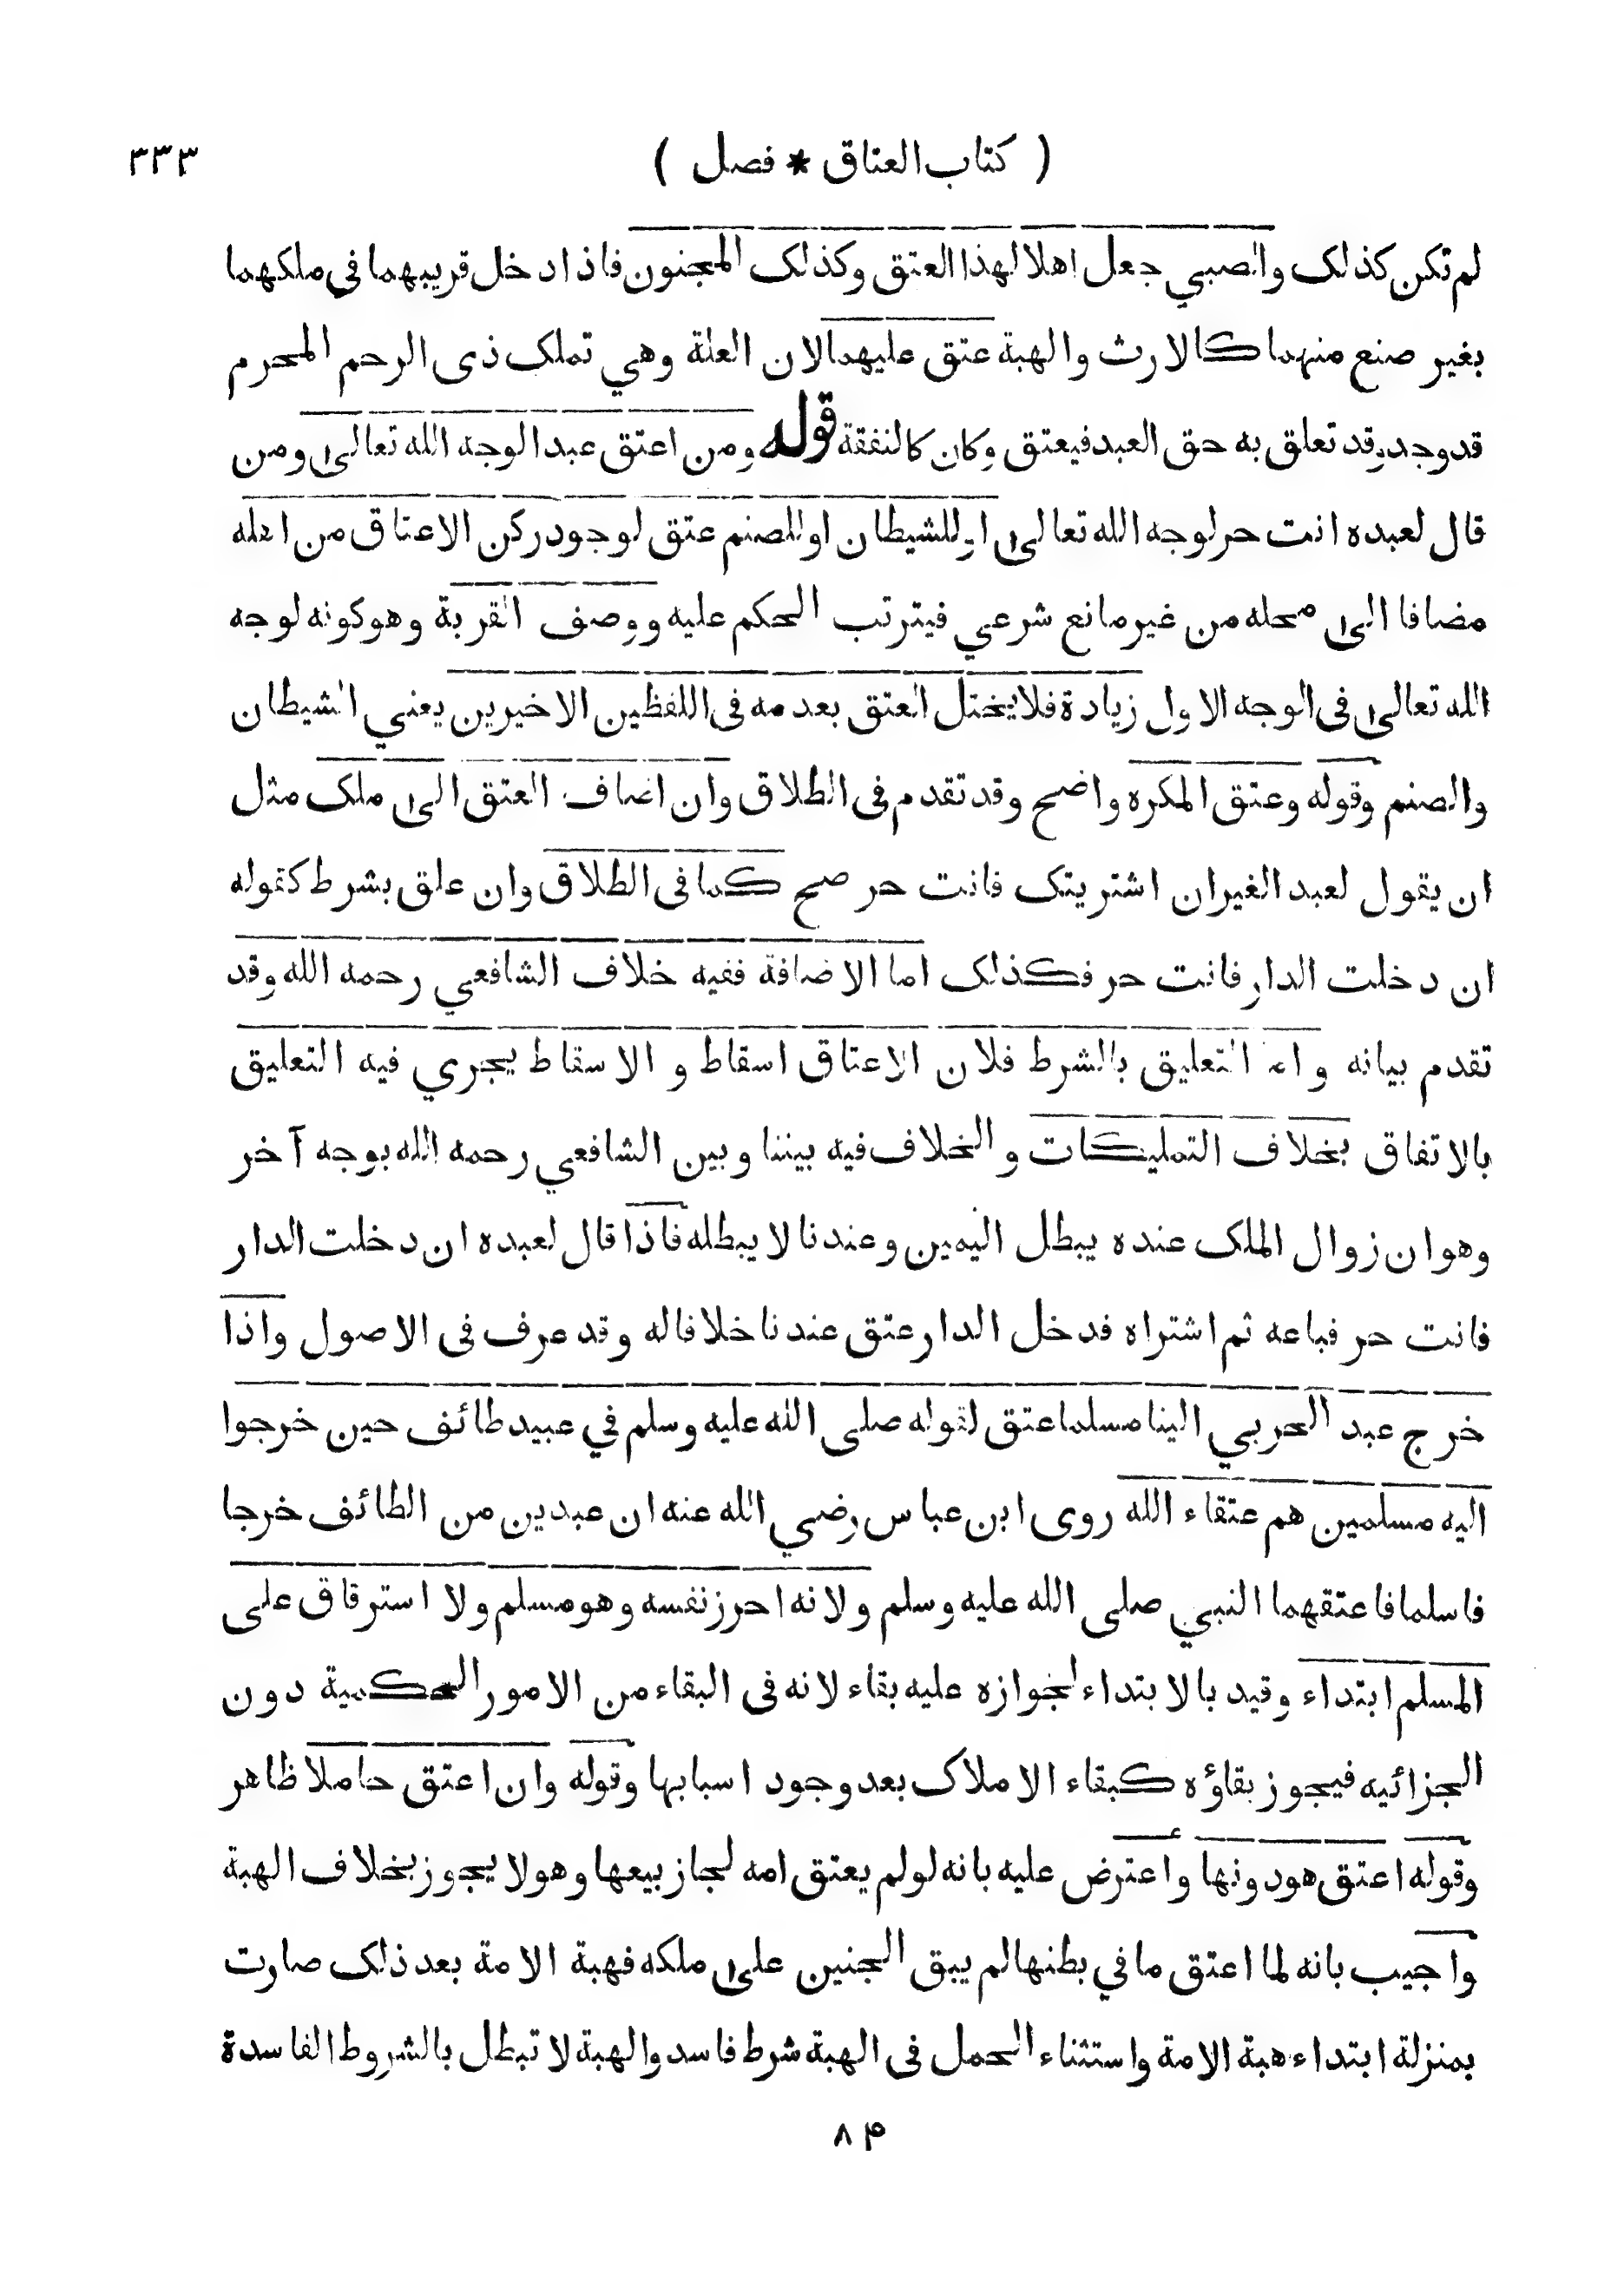 ( كتاب العتاق * فصل ) ٣٣٣
لم تكن كذلك والصبي جعل اهلا لهذا العتق وكذلك المجنون فاذا دخل قريبهما في ملكهما
بغير صنع منهما كالارث والهبة عتق عليهما لان العلة وهي تملك ذى الرحم المحرم
قد وجد وقد تعلق به حق العبد فيعتق وكان كالنفقة قوله ومن اعتق عبدا لوجه الله تعالى ومن
قال لعبده انت حر لوجه الله تعالى او للشيطان او للصنم عتق لوجود ركن الاعتاق من اهله
مضافا الى محله من غير مانع شرعي فيترتب الحكم عليه ووصف القربة وهو كونه لوجه
الله تعالى فى الوجه الاول زيادة فلا يختل العتق بعدمه فى اللفظين الاخيرين يعني الشيطان
والصنم وقوله وعتق المكره واضح وقد تقدم فى الطلاق وان اضاف العتق الى ملك مثل
ان يقول لعبد الغير ان اشتريتك فانت حر صح كما فى الطلاق وان علق بشرط كقوله
ان دخلت الدار فانت حر فكذلك اما الاضافة ففيه خلاف الشافعي رحمه الله وقد
تقدم بيانه واما التعليق بالشرط فلان الاعتاق اسقاط و الاسقاط يجري فيه التعليق
بالاتفاق بخلاف التمليكات والخلاف فيه بيننا وبين الشافعي رحمه الله بوجه آخر
وهو ان زوال الملك عنده يبطل اليمين وعندنا لا يبطله فاذا قال لعبده ان دخلت الدار
فانت حر فباعه ثم اشتراه فدخل الدار عتق عندنا خلافا له وقد عرف فى الاصول واذا
خرج عبد الحربي الينا مسلما عتق لقوله صلى الله عليه وسلم في عبيد طائف حين خرجوا
اليه مسلمين هم عتقاء الله روى ابن عباس رضي الله عنه ان عبدين من الطائف خرجا
فاسلما فاعتقهما النبي صلى الله عليه وسلم ولانه احرز نفسه وهو مسلم ولا استرقاق على
المسلم ابتداء وقيد بالابتداء لجوازه عليه بقاء لانه فى البقاء من الامور الحكمية دون
الجزائيه فيجوز بقاؤه كبقاء الاملاك بعد وجود اسبابها وقوله وان اعتق حاملا ظاهر
وقوله اعتق هو دونها وأعترض عليه بانه لو لم يعتق امه لجاز بيعها وهو لا يجوز بخلاف الهبة
واجيب بانه لما اعتق ما في بطنها لم يبق الجنين على ملكه فهبة الامة بعد ذلك صارت
بمنزلة ابتداء هبة الامة واستثناء الحمل فى الهبة شرط فاسد والهبة لا تبطل بالشروط الفاسدة
٨۴